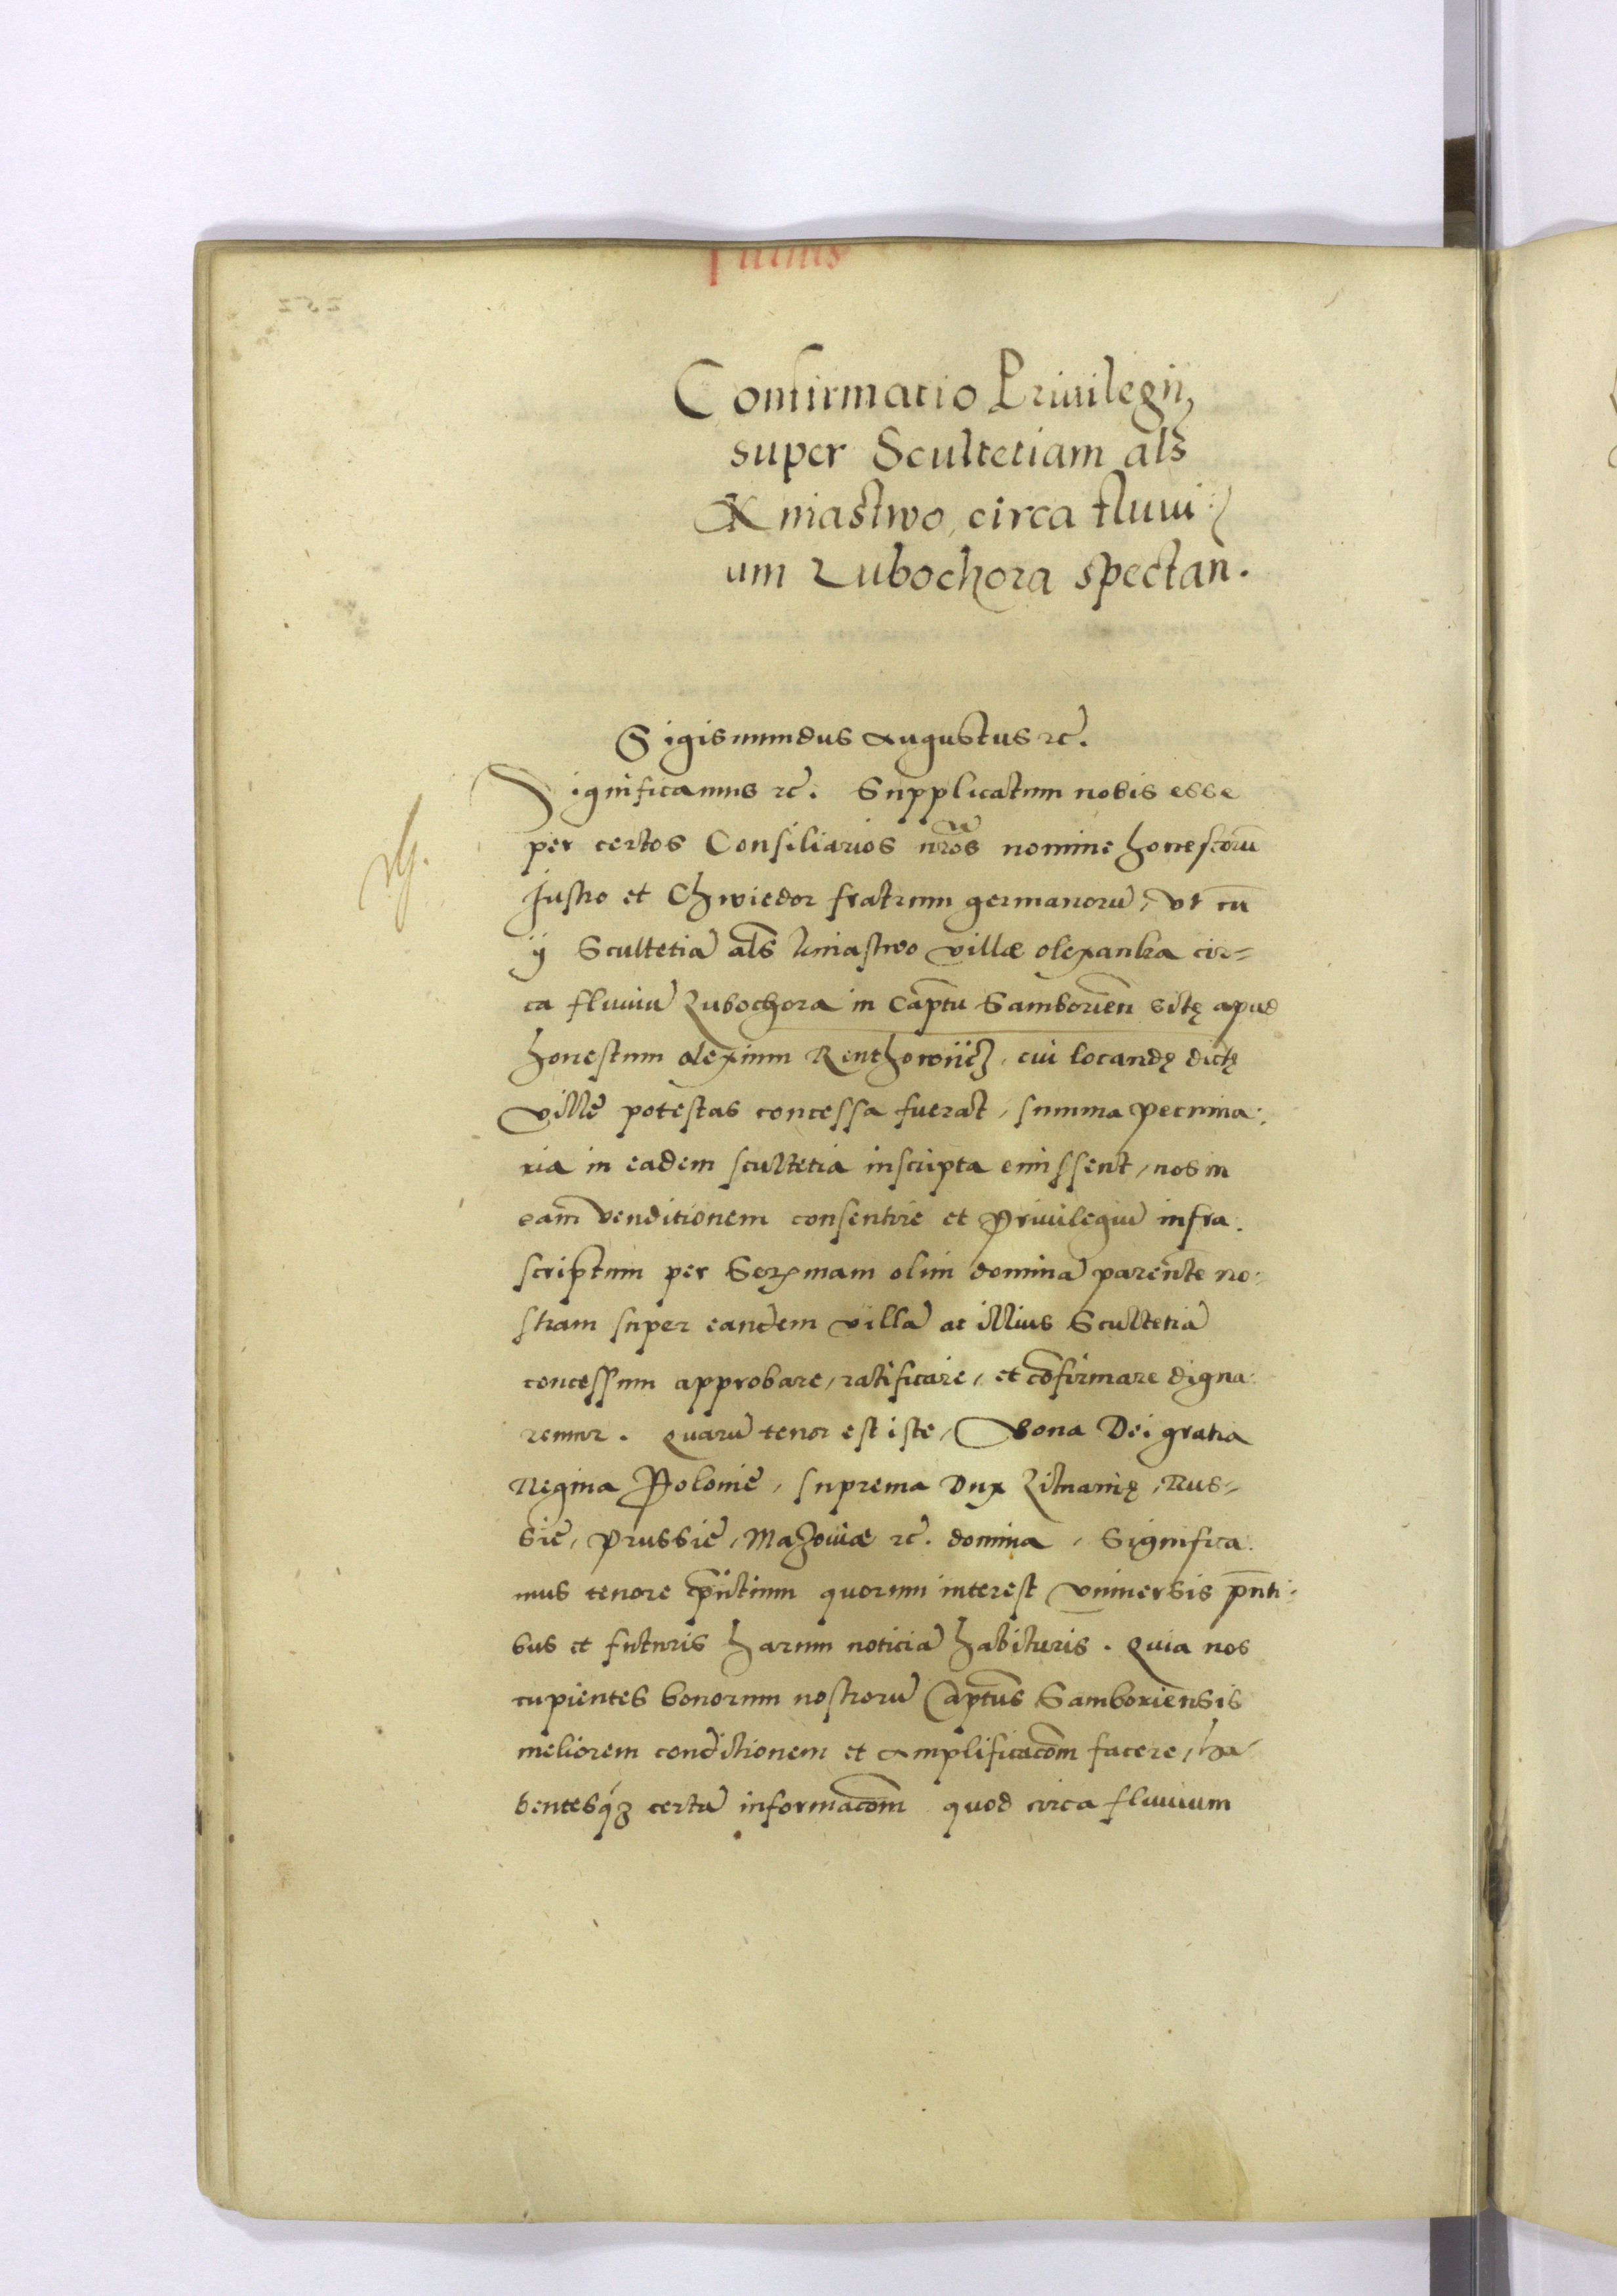 Confirmatio Privilegij,
super Scultetiam als
Kniastwo, circa fluvi:
um Lubochora spectan.
Sigismundus Augustus rc.
Significamus rc. Supplicatum nobis esse
per certos Consiliarios nros nomine honestorũ
Justro et Chwiedor fratrum germanorũ, vt cũ
ij Scultetiã als kniastwo villæ Olexanka cir=
ca fluviũ Lubochora in Captu Samborien sitę apud
honestum Olexium Renthowiicz, cui locandę dictę
Ville potestas concessa fuerat, summa pecunia:
ria in eadem scultetia inscripta emissent, nos in
eam venditionem consentire et Privilegiũ infra:
scriptum per Serxmam olim dominã parentẽ no:
stram super eandem villã ac illius Scultetiã
concessum approbare, ratificare, et cõfirmare digna:
remur. Quarũ tenor est iste, Bona Dei gratia
Regina Polonie, suprema Dux Lituanię, Rus=
sie, Prussie, Mazoviæ rc. domina, Significa:
mus tenore pñtium quorum interest vniversis pñti:
bus et futuris harum noticiã habituris. Quia nos
cupientes bonorum nostrorũ Captus Samboriensis
meliorem conditionem et amplificacõm facere, ha=
bentesqȝ certã informacõm quod circa fluvium